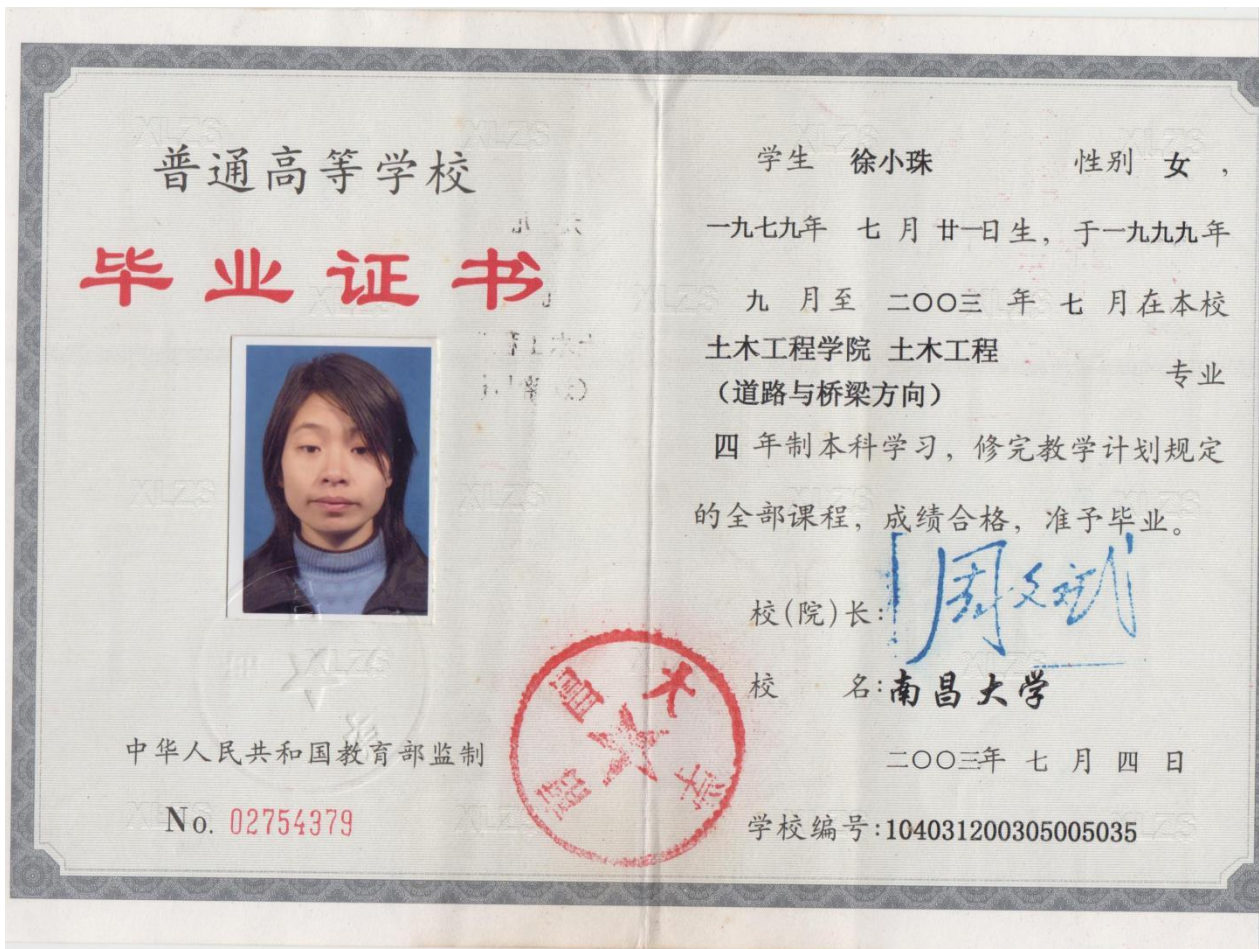 普通高等学校
毕业证书
中华人民共和国教育部监制
No. 02754379
学生 徐小珠 性别 女 ,
一九七九年 七 月 廿一日生, 于一九九九年
九 月至 二〇〇三 年 七 月在本校
土木工程学院 土木工程
(道路与桥梁方向) 专业
四 年制本科学习, 修完教学计划规定
的全部课程, 成绩合格, 准予毕业。
校(院)长: 周文斌
校 名: 南昌大学
二〇〇三年 七 月 四 日
学校编号: 104031200305005035
南昌大学
XLZS